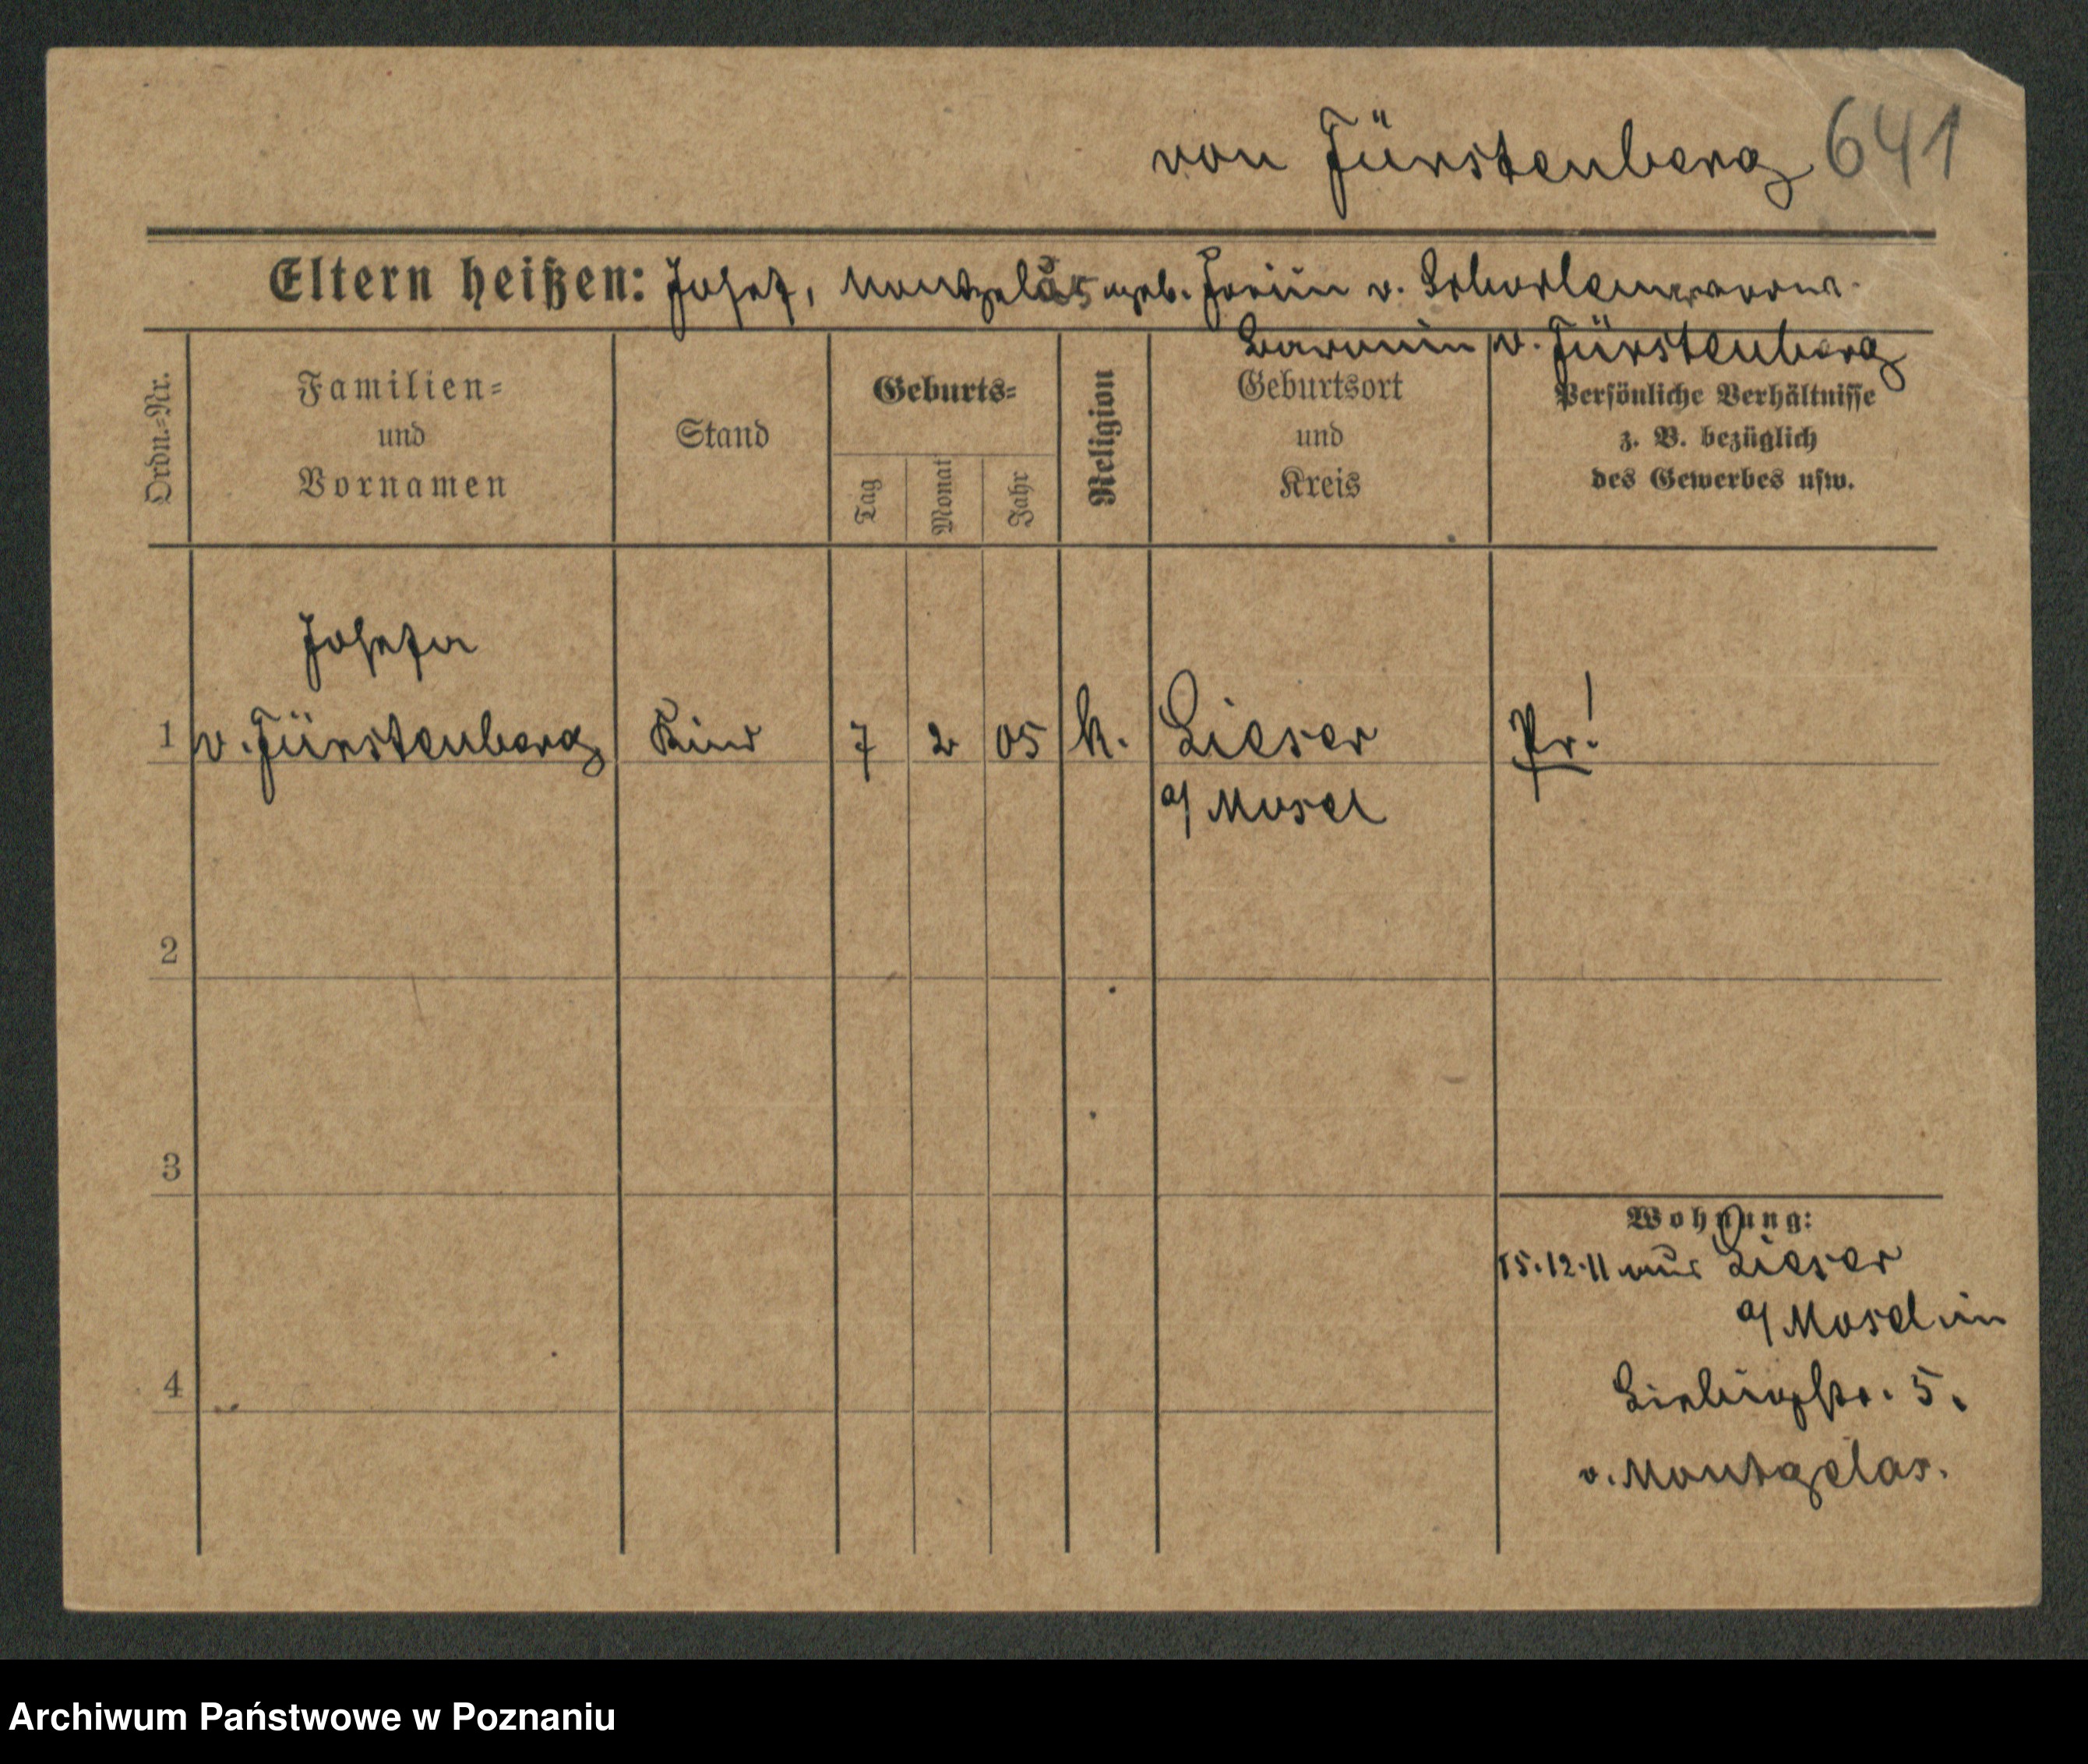 von Fürstenberg 641
Eltern heißen: Josef, Montgelas geb. Freiin v. Schorlemer verw.
Baronin v. Fürstenberg
Ordn.-Nr.
Familien-
und
Vornamen
Stand
Geburts-
Tag
Monat
Jahr
Religion
Geburtsort
und
Kreis
Persönliche Verhältnisse
z. B. bezüglich
des Gewerbes usw.
Josefa
1 v. Fürstenberg Kind 7 2 05 k. Lieser Pr!
a/ Mosel
2
3
Wohnung:
15.12.11 aus Lieser
a/ Mosel in
4
5.
v. Montgelas.
Archiwum Państwowe w Poznaniu